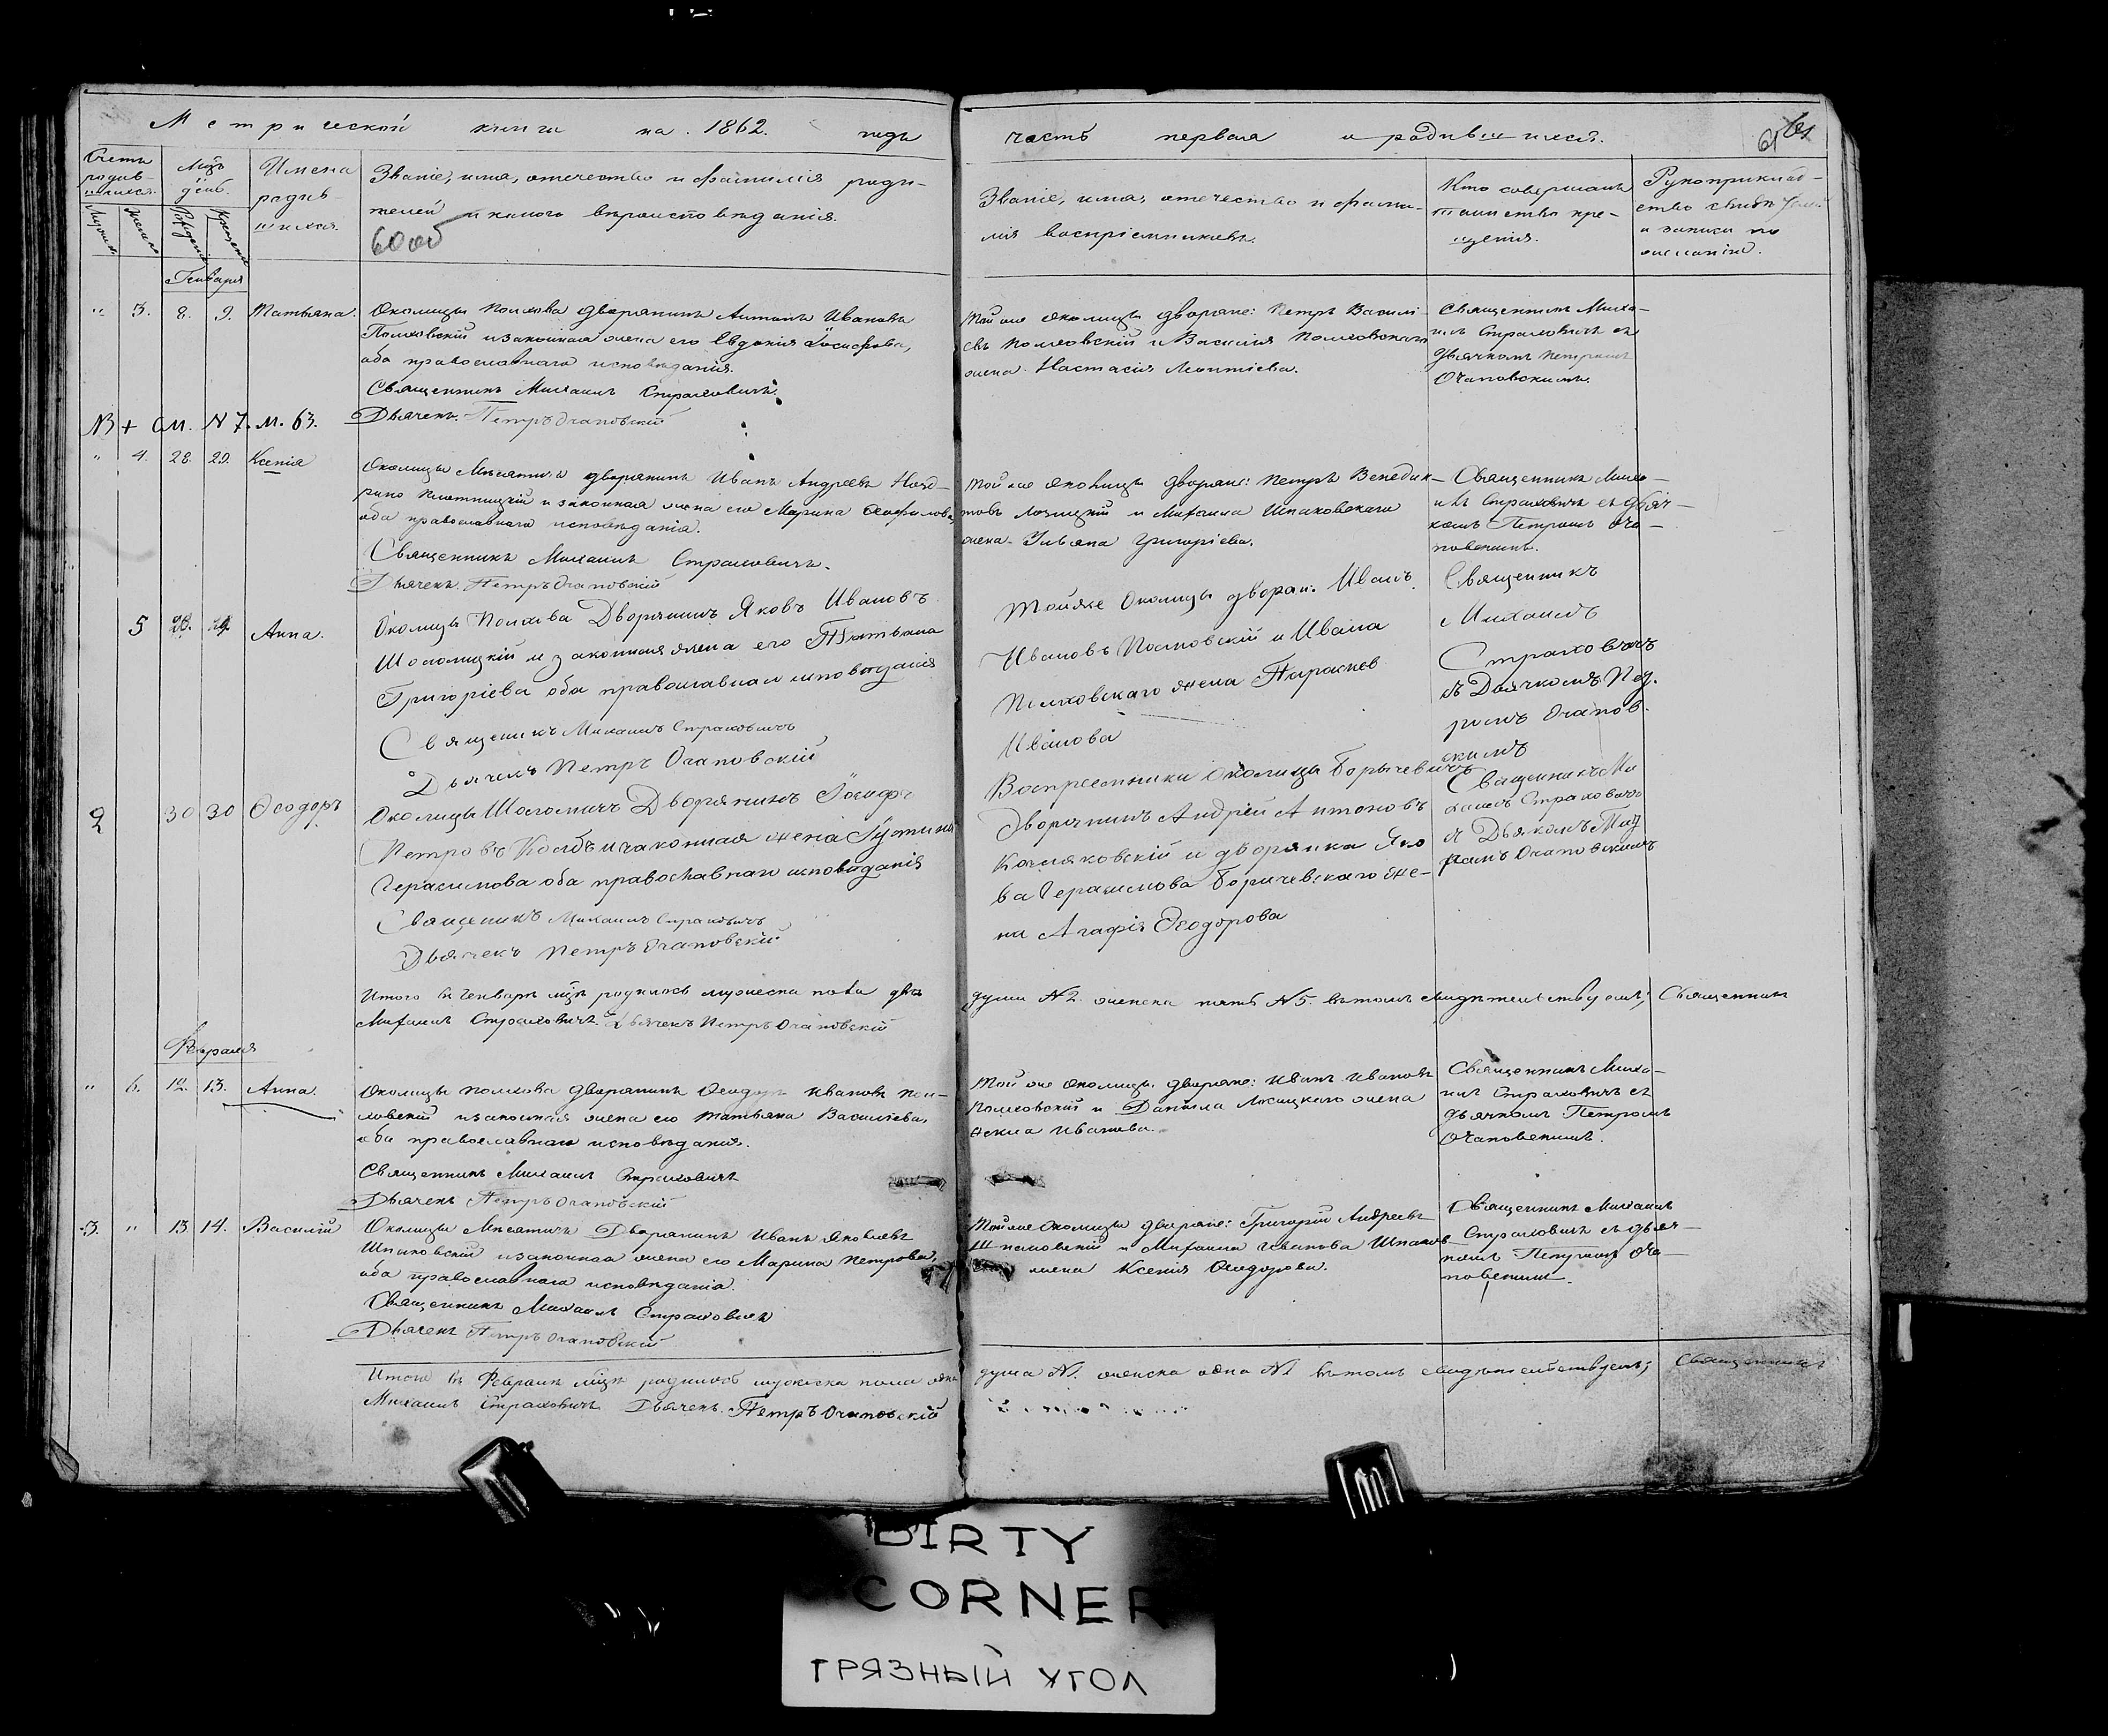 Метрической книги на 1862. годъ
часть первая о родившихся.
61
Счетъ родив-шихся.
Мцъ день.
Имена родив-шихся.
Званіе, имя, отечество и фамилія роди-
телей и какого вѣроисповѣданія.
60 об
Званіе, имя, отечество и фами-
лія воспріемниковъ.
Кто совершалъ
таинство кре-
щенія.
Рукоприклад-
ство
и записи по
желанію.
Генваря
" 3. 8. 9. Татьяна.
Околицы Полхова дворянинъ Антонъ Ивановъ
Полховскій и законная жена его Евдокія Іосифова,
оба православнаго исповѣданія.
Священникъ Михаилъ Страховичъ.
Дьячекъ Петръ Очаповскій
Той же околицы дворяне: Петръ Василі-
евъ Полховскій и Василія Полховскаго
жена Настасія
Священникъ Миха-
илъ Страховичъ съ
дьячкомъ Петромъ
Очаповскимъ.
NB + См. N 7. м. 63.
" 4. 28. 29. Ксенія
Околицы Мисятичъ дворянинъ Иванъ Андреевъ
и законная жена его Марина Феофилова
оба православнаго исповѣданія.
Священникъ Михаилъ Страховичъ.
Дьячекъ Петръ Очаповскій
Той же околицы дворяне: Петръ Венедик-
товъ Лозицкій и Михаила Шпаковскаго
жена Ульяна Григоріева.
Священникъ Миха-
илъ Страховичъ съ дьяч-
комъ Петромъ Оча-
повскимъ.
5 Анна.
Околицы Полхова Дворянинъ Яковъ Ивановъ
Шоломицкій и законная жена его Татьяна
Григоріева оба православнаго исповѣданія
Священикъ Михаилъ Страховичъ
Дьячекъ Петръ Очаповскій
Тойже Околицы дворян: Иванъ
Ивановъ Полховскій и Ивана
Полховскаго жена
Иванова
Священникъ
Михаилъ
Страховичъ
съ Дьячкомъ Пет-
ромъ Очапов-
скимъ
2 30 30 Ѳеодоръ
Околицы Шоломичъ Дворянинъ Іосифъ
Петровъ и законная жена
Герасимова оба православнаго исповѣданія
Священикъ Михаилъ Страховичъ
Дьячекъ Петръ Очаповскій
Воспреемники Околицы Борычевичъ
Дворянинъ Андрей Антоновъ
и дворянка Яко
ва Герасимова Боричевскаго же-
на Агафія Ѳеодорова
Священикъ Ми
хаилъ Страховичъ
Очаповскимъ
Итого въ Генварѣ мцѣ родилось мужеска пола двѣ
души N 2. женска пять N 5. въ томъ свидѣтельствуемъ; Священникъ
Михаилъ Страховичъ. Дьячекъ Петръ Очаповскій
Февраля
" 6. 12. 13. Анна.
Околицы Полхова дворянинъ Ѳеодоръ Ивановъ Пол-
ховскій и законная жена его Татьяна Васильева,
оба православнаго исповѣданія.
Священникъ Михаилъ Страховичъ
Дьячекъ Петръ Очаповскій
Той же околицы дворяне: Иванъ Ивановъ
Полховскій и Данила Лозицкаго жена
Иванова.
Священникъ Миха-
илъ Страховичъ съ
дьячкомъ Петромъ
Очаповскимъ.
3. " 13 14. Василій
Околицы Мисятичъ Дворянинъ Иванъ Яковлевъ
Шпаковскій и законная жена его Марина Петрова,
оба православнаго исповѣданія.
Священникъ Михаилъ Страховичъ
Дьячекъ Петръ Очаповскій
Тойже Околицы дворяне: Григорій Андреевъ
Шпаковскій и Михаила Иванова Шпаков
жена Ксенія Ѳеодорова.
Священникъ Михаилъ
Страховичъ съ дьяч-
комъ Петромъ Оча-
повскимъ.
Итого въ Февралѣ мцѣ родилось мужеска пола одна
душа N 1. женска одна N 1 въ томъ свидѣтельствуемъ; Священникъ
Михаилъ Страховичъ Дьячекъ Петръ Очаповскій
DIRTY
CORNER
ГРЯЗНЫЙ УГОЛ